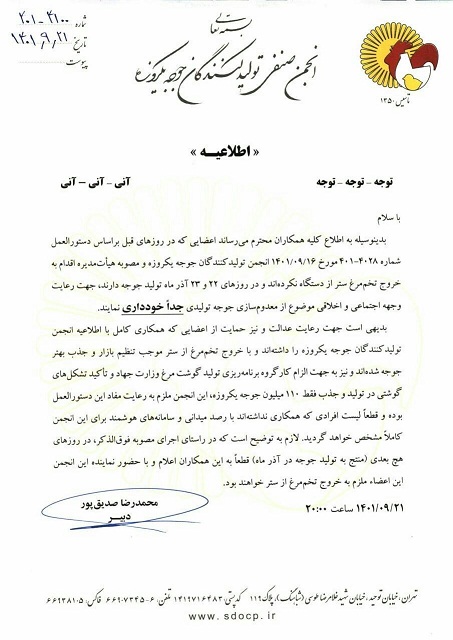 بسمه تعالی
انجمن صنفی تولیدکنندگان جوجه یکروزه
شماره ۴۱۰۰-۲۰۱
تاریخ ۱۴۰۱/۹/۲۱
پیوست
تاسیس ۱۳۵۰
« اطلاعیه »
توجه – توجه – توجه آنی – آنی – آنی
با سلام
بدینوسیله به اطلاع کلیه همکاران محترم می‌رساند اعضایی که در روزهای قبل براساس دستورالعمل
شماره ۴۰۲۸-۴۰۱ مورخ ۱۴۰۱/۰۹/۱۶ انجمن تولیدکنندگان جوجه یکروزه و مصوبه هیأت‌مدیره اقدام به
خروج تخم‌مرغ از ستر از دستگاه نکرده‌اند و در روزهای ۲۲ و ۲۳ آذر ماه تولید جوجه دارند، جهت رعایت
وجهه اجتماعی و اخلاقی موضوع از معدوم‌سازی جوجه تولیدی جداً خودداری نمایند.
بدیهی است جهت رعایت عدالت و نیز حمایت از اعضایی که همکاری کامل با اطلاعیه انجمن
تولیدکنندگان جوجه یکروزه را داشته‌اند و با خروج تخم‌مرغ از ستر موجب تنظیم بازار و جذب بهتر
جوجه شده‌اند و نیز به جهت الزام کارگروه برنامه‌ریزی تولید گوشت مرغ وزارت جهاد و تأکید تشکل‌های
گوشتی در تولید و جذب فقط ۱۱۰ میلیون جوجه یکروزه، این انجمن ملزم به رعایت مفاد این دستورالعمل
بوده و قطعاً لیست افرادی که همکاری نداشته‌اند با رصد میدانی و سامانه‌های هوشمند برای این انجمن
کاملاً مشخص خواهد گردید. لازم به توضیح است که در راستای اجرای مصوبه فوق‌الذکر، در روزهای
هچ بعدی (منتج به تولید جوجه در آذر ماه) قطعاً به این همکاران اعلام و با حضور نماینده این انجمن
این اعضاء ملزم به خروج تخم‌مرغ از ستر خواهند بود.
۱۴۰۱/۰۹/۲۱ ساعت ۲۰:۰۰
محمدرضا صدیق‌پور
دبیر
تهران، خیابان توحید، خیابان شهید غلامرضا طوسی (شباهنگ)، پلاک ۱۱۹ کدپستی: ۱۴۱۹۷۱۶۴۸۳ تلفن: ۶-۶۶۹۰۷۳۴۵ فاکس: ۶۶۹۳۸۱۰۵
www.sdocp.ir